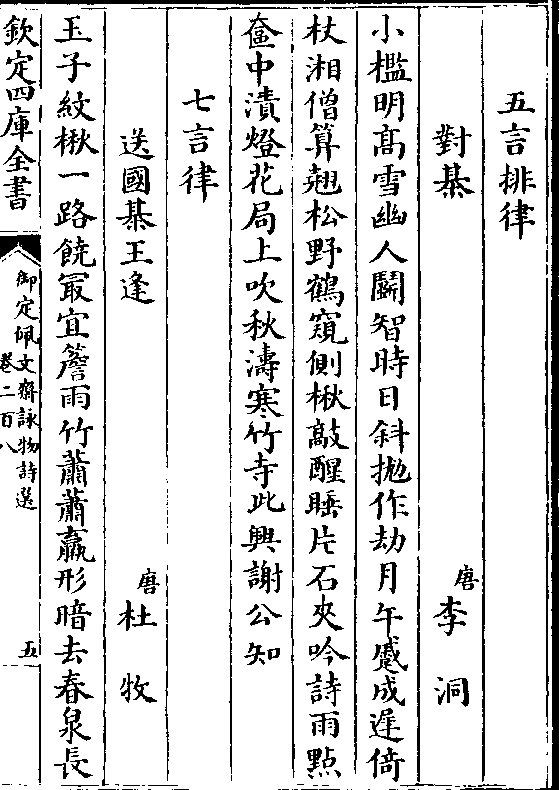 五言排律
對棊 唐 李洞
小檻明髙雪幽人鬭智時日斜抛作劫月午蹙成遲倚
杖湘僧算翹松野鶴窺側楸敲醒睡片石夾吟詩雨點
奩中漬燈花局上吹秋濤寒竹寺此興謝公知
七言律
送國棊王逢 唐 杜牧
玉子紋楸一路饒冣宜簷雨竹蕭蕭羸形暗去春泉長
欽定四庫全書 御定佩文齋詠物詩選 卷二百八 五